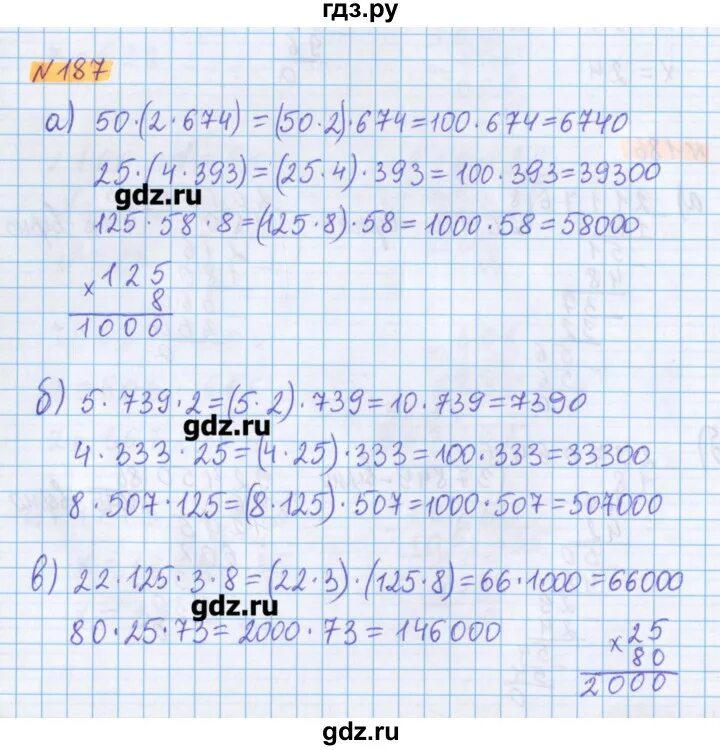 гдз.ру
№187
а) 50·(2·674)=(50·2)·674=100·674=6740
25·(4·393)=(25·4)·393=100·393=39300
gdz.ru
125·58·8=(125·8)·58=1000·58=58000
×125
8
1000
б) 5·739·2=(5·2)·739=10·739=7390
gdz.ru
4·333·25=(4·25)·333=100·333=33300
8·507·125=(8·125)·507=1000·507=507000
в) 22·125·3·8=(22·3)·(125·8)=66·1000=66000
gdz.ru
80·25·73=2000·73=146000
×25
80
2000
gdz.ru